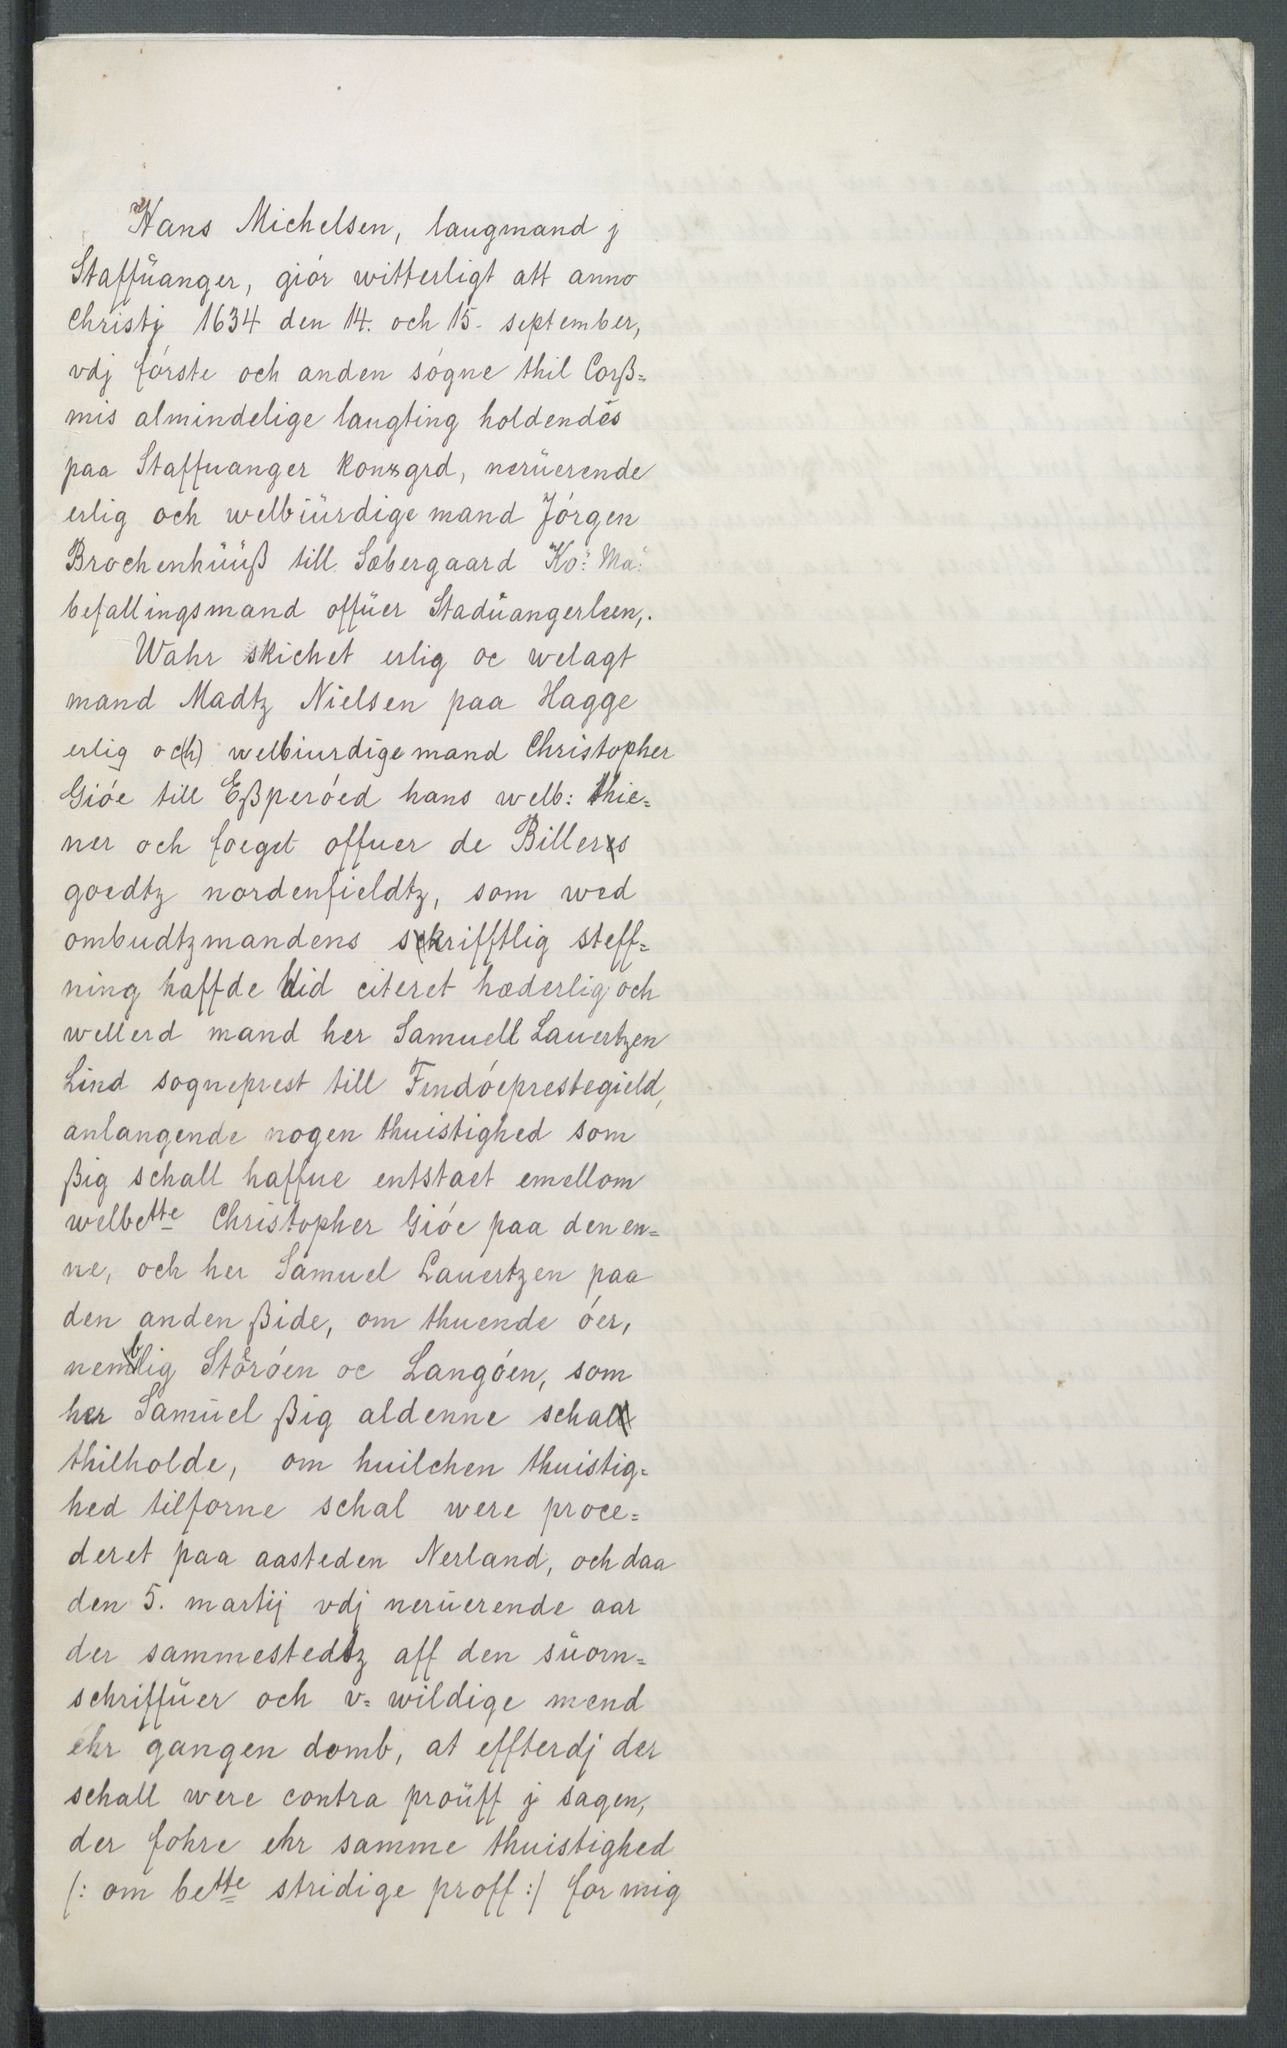 Hans Michelsen, laugmand j
Staffüanger, giór witterligt att anno
Christj 1634 den 14. och 15. september,
vdj fórste och anden sógne thil Corß=
mis almindelige laugting holdendes
paa Staffuanger konsgrd, nerüerende
erlig och welbiürdige mand Jórgen
Brochenhüüß till Sœbergaard Ko: Ma:
befallingsmand offüer Stadüangerleen,.
Wahr skichet erlig oc welagt
mand Madtz Nielsen paa Hagge
erlig oc(h) welbiurdige mand Christopher
Gióe till Eßperóed hans welb: thie=
ner och foeget offuer de Billes
goedtz nordenfieldtz, som wed
ombudtzmandens skrifftlig steff=
ning haffde hid citeret hæderlig och
wellerd mand her Samuell Lauertzen
Lind sogneprest till Findóeprestegield,
anlangende nogen thuistighed som
ßig schall haffue entstaet emellom
welbette Christopher Gióe paa den en=
ne, och her Samuel Lauertzen paa
den anden ßide, om thuende óer,
nemblig Stóróen oc Langóen, som
her Samüel ßig aldenne schal
thilholde, om huilchen thuistig=
hed tilforne schal were proce=
deret paa aasteden Nerland, och daa
den 5. martij vdj nerüerende aar
der sammestedtz aff den süorn=
schriffüer och v= wildige mend
ehr gangen domb, at effterdj der
schall were contra proüff j sagen,
der fohre ehr samme thuistighed
/: om bette stridige proff :/ for mig